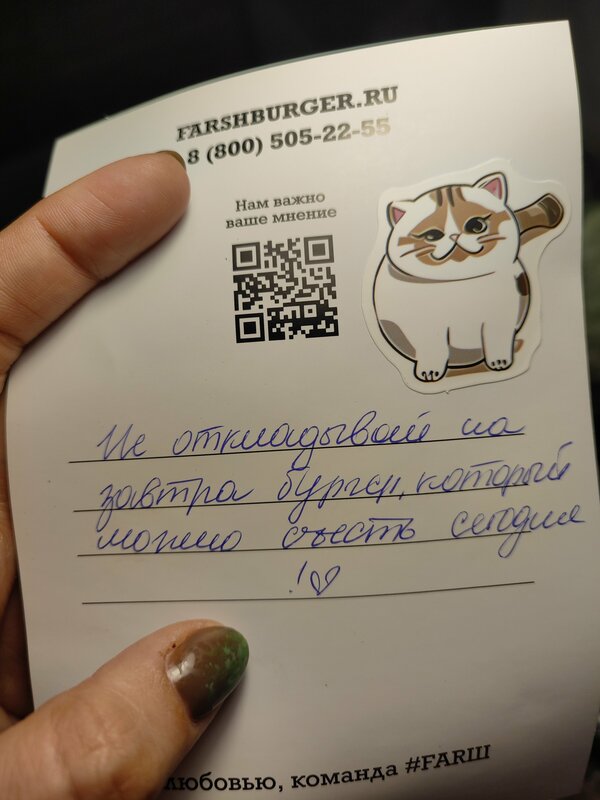 FARSHBURGER.RU
8 (800) 505-22-55
Нам важно
ваше мнение
Не откладывай на
завтра бургер, который
можно съесть сегодня
!♡
любовью, команда #FARШ